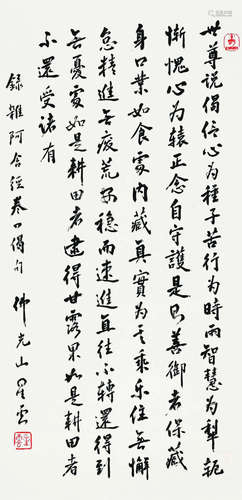 世尊說偈信心為種子苦行為時雨智慧為犁軛
慚愧心為轅正念自守護是則善御者保藏
身口業知食處內藏真實為真乘樂住無懈
怠精進無廢荒安穩而速進直往不轉還得到
無憂處如是耕田者逮得甘露果如是耕田者
不還受諸有
錄雜阿含經卷四偈句
佛光山星雲